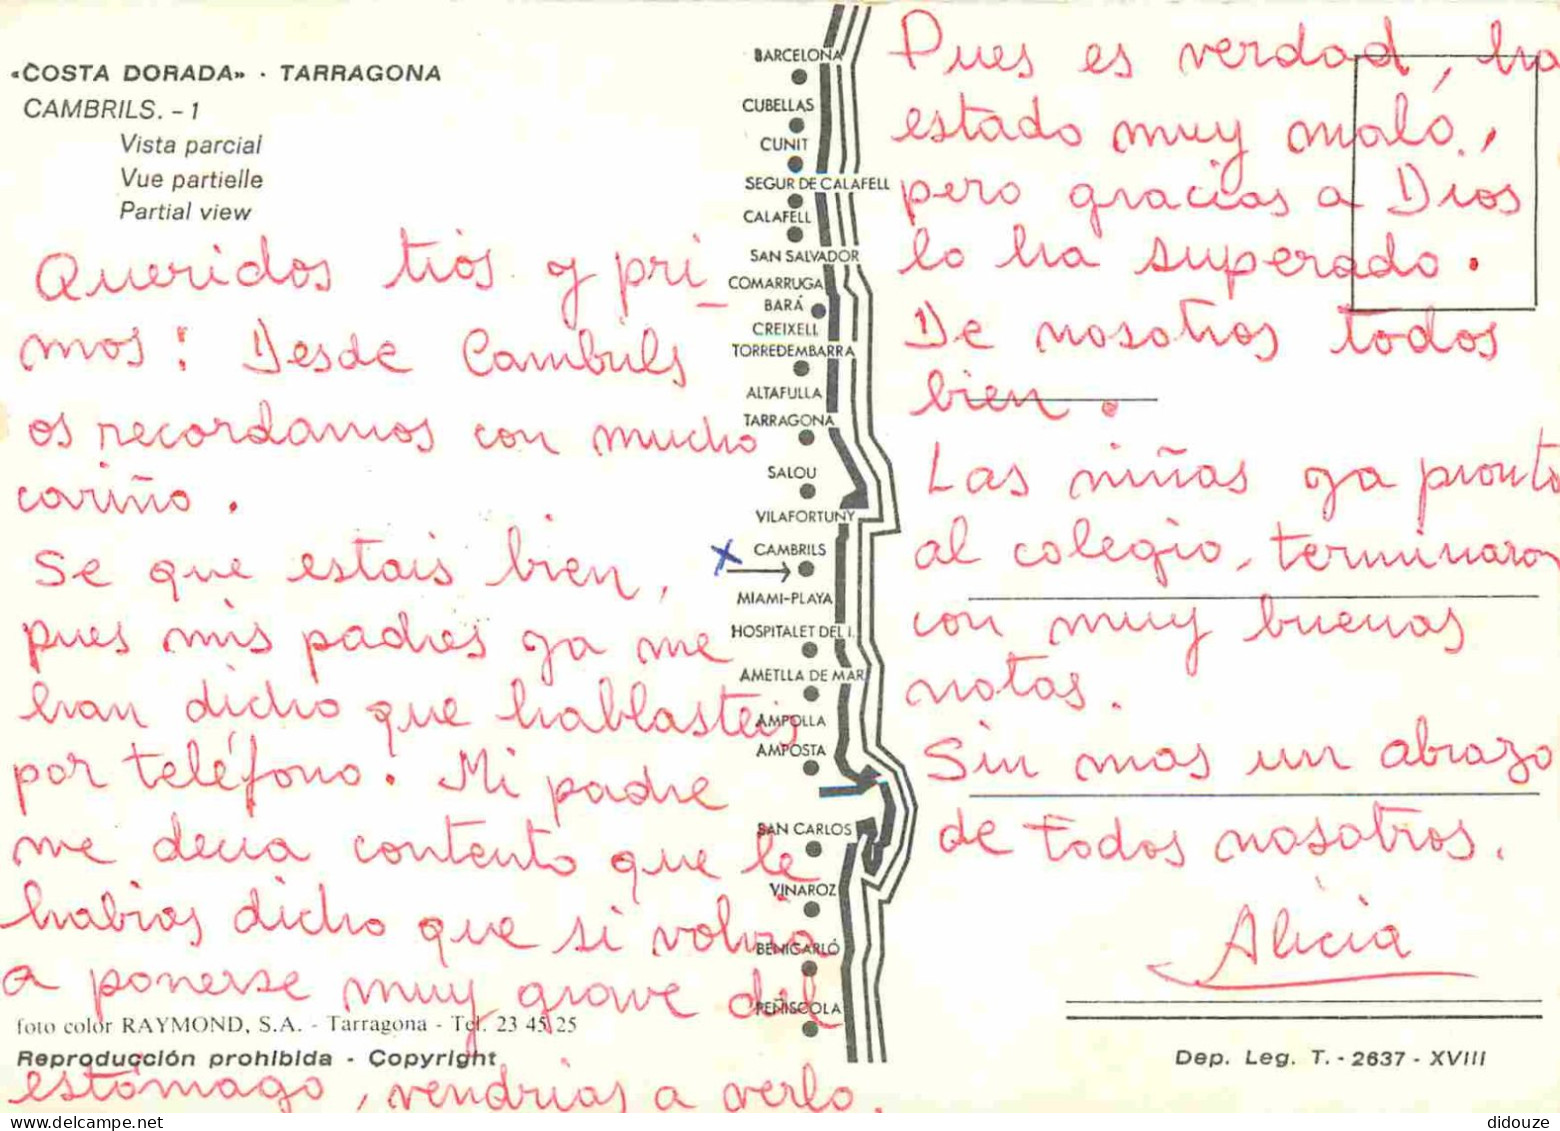 «COSTA DORADA» · TARRAGONA
CAMBRILS. - 1
Vista parcial
Vue partielle
Partial view
Queridos tios y pri-
mos: Desde Cambrils
os recordamos con mucho
cariño.
Se que estais bien,
pues mis padres ya me
han dicho que hablasteis
por teléfono. Mi padre
me decia contento que le
habias dicho que si volvia
a ponerse muy grave del
foto color RAYMOND, S.A. - Tarragona - Tel. 23 45 25
Reproducción prohibida - Copyright
estómago, vendrias a verlo.
BARCELONA
CUBELLAS
CUNIT
SEGUR DE CALAFELL
CALAFELL
SAN SALVADOR
COMARRUGA
BARÁ
CREIXELL
TORREDEMBARRA
ALTAFULLA
TARRAGONA
SALOU
VILAFORTUNY
X CAMBRILS
MIAMI-PLAYA
HOSPITALET DEL I.
AMETLLA DE MAR
AMPOLLA
AMPOSTA
SAN CARLOS
VINAROZ
BENICARLÓ
PEÑISCOLA
Pues es verdad, ha
estado muy malo,
pero gracias a Dios
lo ha superado.
De nosotros todos
bien.
Las niñas ya pronto
al colegio, terminaron
con muy buenas
notas.
Sin mas un abrazo
de todos nosotros.
Alicia
Dep. Leg. T. - 2637 - XVIII
didouze